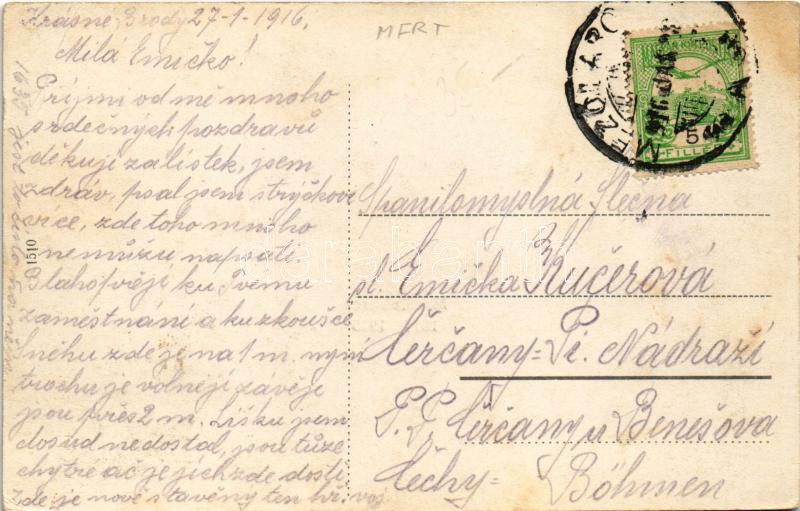 Krásné Brody 27-1-1916.
MFRT
Milá Emičko!
Príjmi od mě mnoho
srdečných pozdravů
děkuji za lístek, jsem
zdráv, psal jsem strýčkovi
více, zde toho mnoho
nemůžu napsati.
Blahopřeji ku Tvému
zaměstnání a ku zkoušce
Sněhu zde je na 1 m. nyní
trochu je volněji závěje
jsou přes 2 m. Lišku jsem
dosud nedostal, jsou tůze
chytré ač je jich zde dosti
zde je nově stavěny ten hř. voj.
1510
MEZŐLABORC
5
FILLÉR
Spanilomyslná Slečna
sl. Emička Kučerová
Čerčany = Pi. Nádraží
P. P. Čerčany u Benešova
Čechy = Böhmen
darabanth